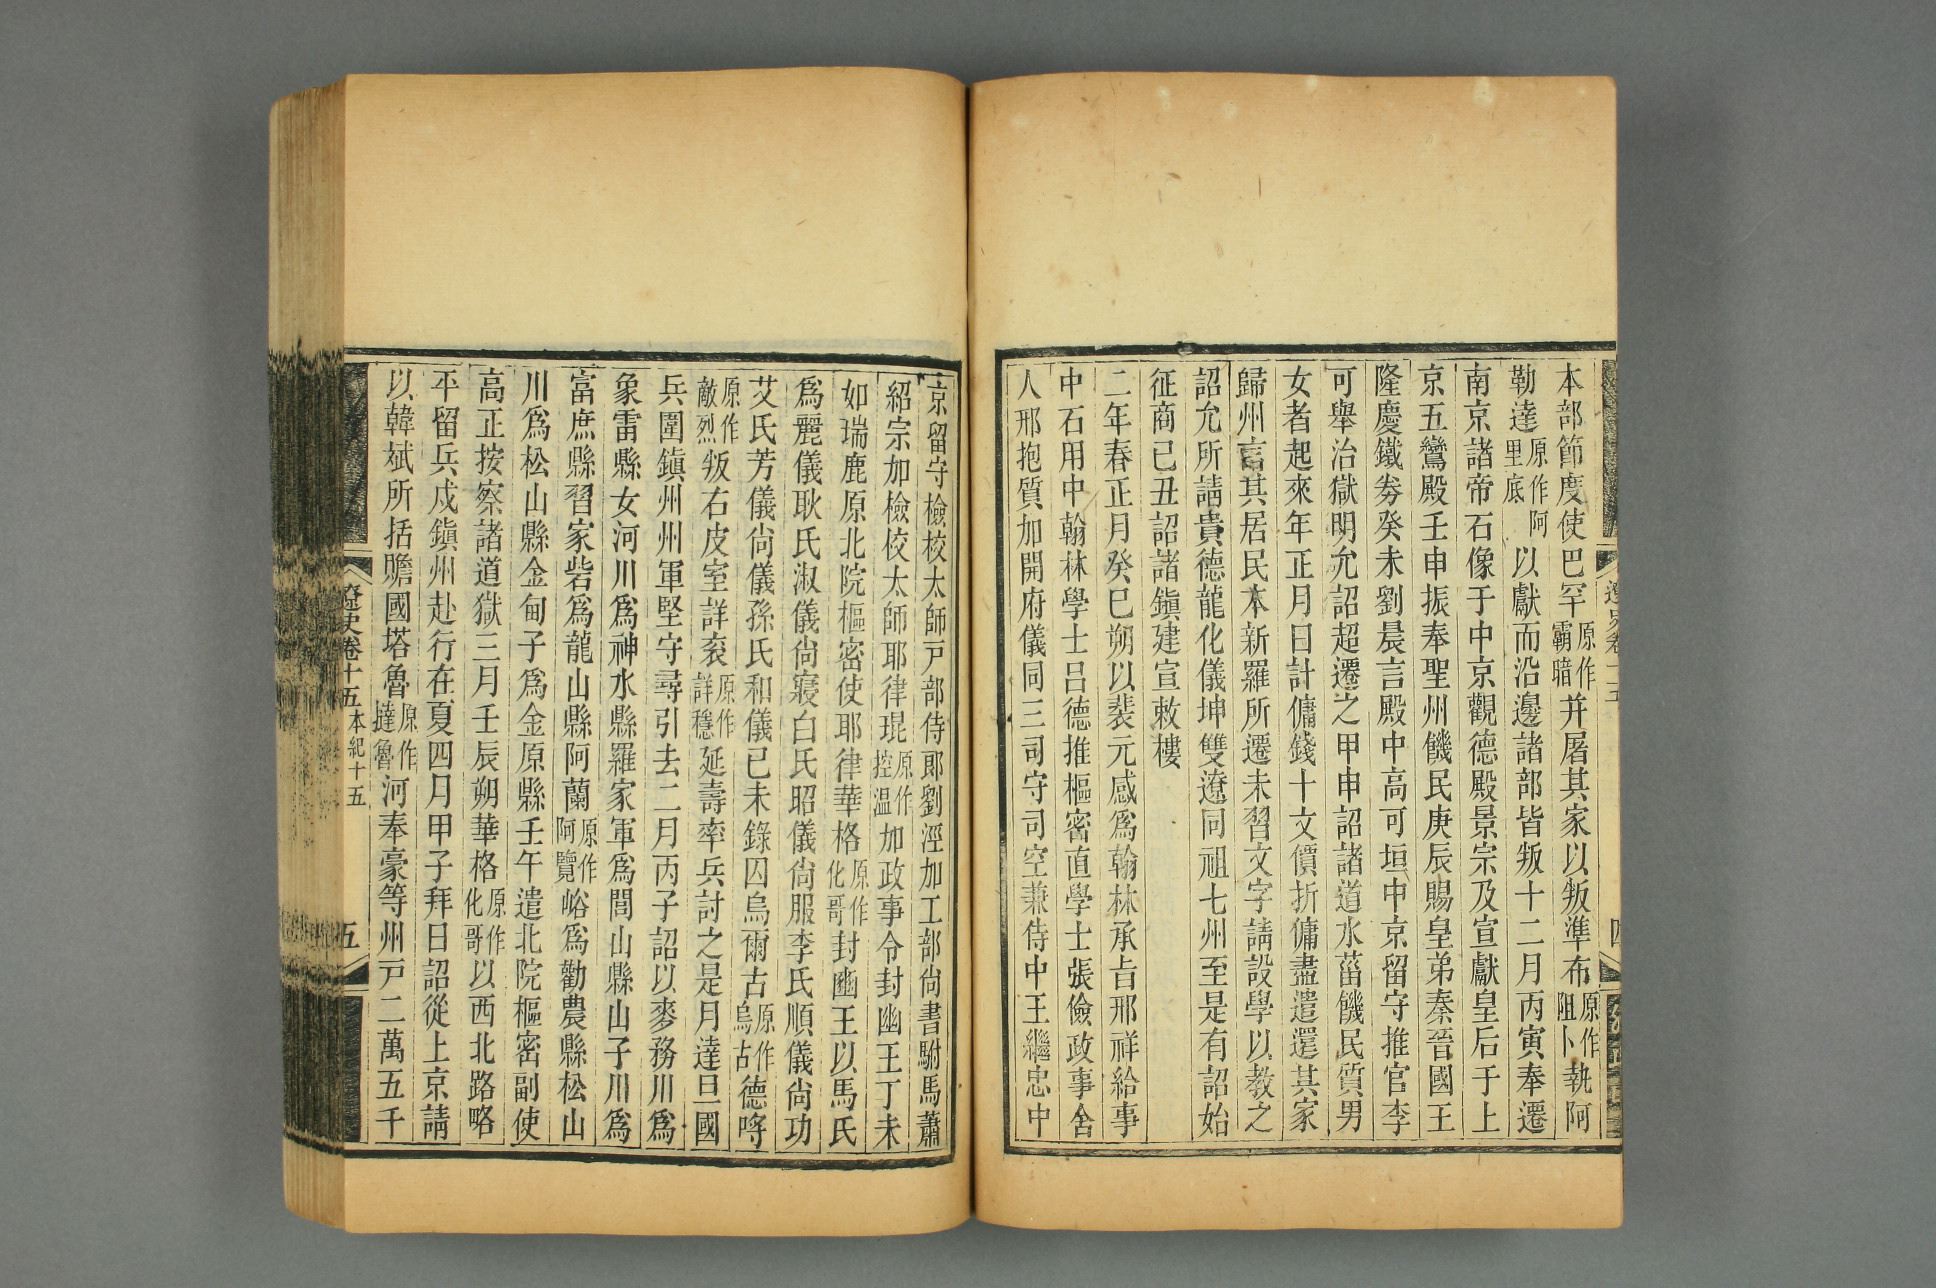 本部節度使巴罕原作霸暗并屠其家以叛準布原作阻卜執阿
勒達原作阿里底以獻而沿邊諸部皆叛十二月丙寅奉遷
南京諸帝石像于中京觀德殿景宗及宣獻皇后于上
京五鸞殿壬申振奉聖州饑民庚辰賜皇弟秦晉國王
隆慶鐵券癸未劉晨言殿中高可垣中京留守推官李
可舉治獄明允詔超遷之甲申詔諸道水菑饑民質男
女者起來年正月日計傭錢十文價折傭盡遣還其家
歸州言其居民本新羅所遷未習文字請設學以教之
詔允所請貴德龍化儀坤雙遼同祖七州至是有詔始
征商已丑詔諸鎮建宣敕樓
二年春正月癸巳朔以裴元感爲翰林承旨邢祥給事
中石用中翰林學士呂德推樞密直學士張儉政事舍
人邢抱質加開府儀同三司守司空兼侍中王繼忠中
遼史卷十五
四
京留守檢校太師戸部侍郎劉涇加工部尙書駙馬蕭
紹宗加檢校太師耶律琨原作控温加政事令封幽王丁未
如瑞鹿原北院樞密使耶律華格原作化哥封豳王以馬氏
爲麗儀耿氏淑儀尙寢白氏昭儀尙服李氏順儀尙功
艾氏芳儀尙儀孫氏和儀已未錄囚烏爾古原作烏古德哷
原作敵烈叛右皮室詳袞原作詳穩延壽率兵討之是月達旦國
兵圍鎮州州軍堅守尋引去二月丙子詔以麥務川爲
象雷縣女河川爲神水縣羅家軍爲閭山縣山子川爲
富庶縣習家砦爲龍山縣阿蘭原作阿覽峪爲勸農縣松山
川爲松山縣金甸子爲金原縣壬午遣北院樞密副使
高正按察諸道獄三月壬辰朔華格原作化哥以西北路略
平留兵戍鎮州赴行在夏四月甲子拜日詔從上京請
以韓斌所括贍國塔魯原作撻魯河奉豪等州戸二萬五千
遼史卷十五 本紀十五
五